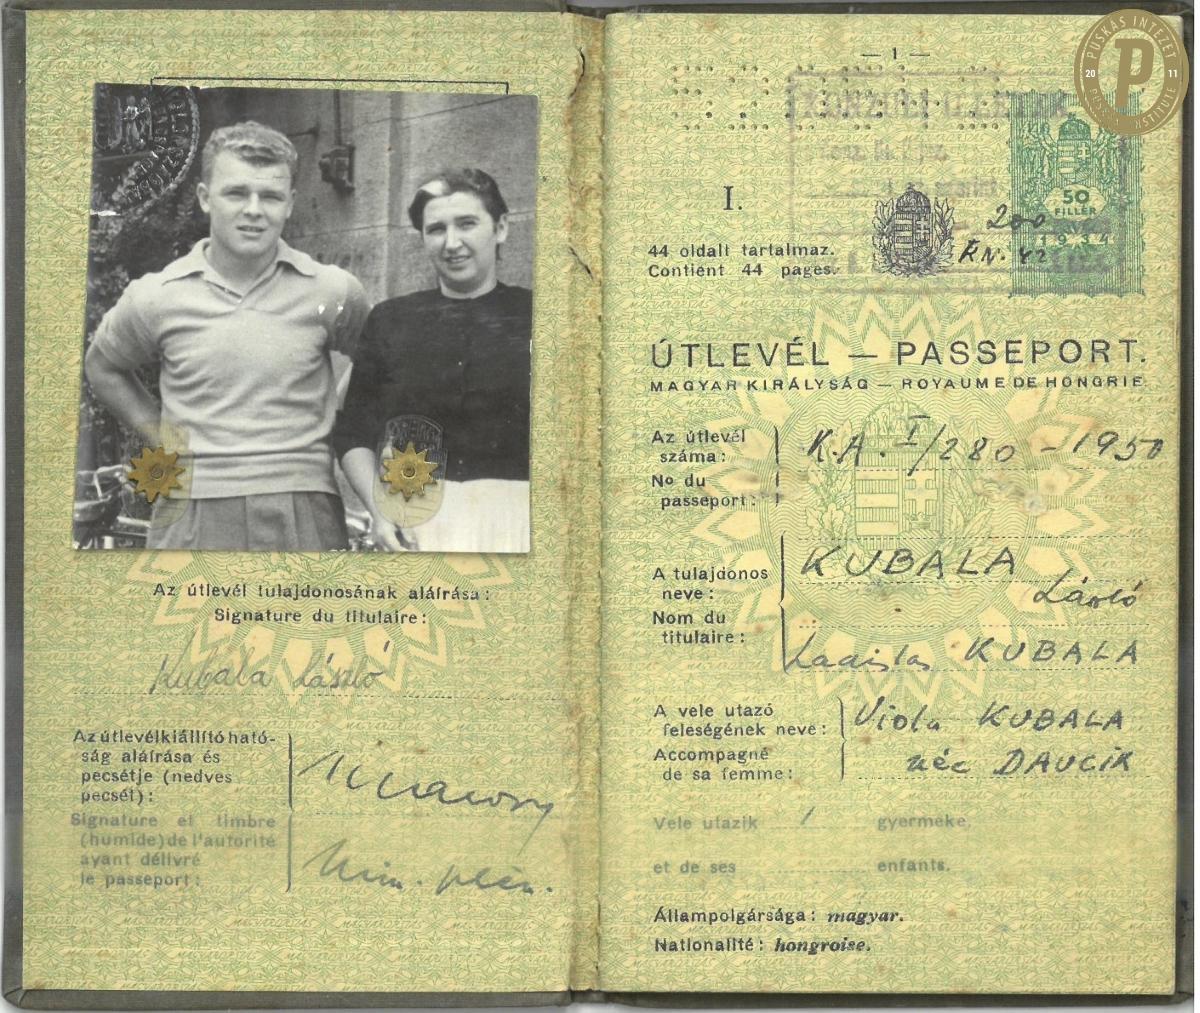 Az útlevél tulajdonosának aláírása:
Signature du titulaire:
Kubala László
Az útlevélkiállító ható-
ság aláírása és
pecsétje (nedves
pecsét):
Signature et timbre
(humide) de l'autorité
ayant délivré
le passeport:
— 1 —
PUSKÁS INTÉZET
20 P 11
PUSKÁS INSTITUTE
KONZULI ILLETÉK
I.
50
FILLÉR
1934
200
44 oldalt tartalmaz.
Contient 44 pages.
ÚTLEVÉL — PASSEPORT.
MAGYAR KIRÁLYSÁG — ROYAUME DE HONGRIE
Az útlevél
száma:
No du
passeport:
K.A. I/280 - 1950
A tulajdonos
neve:
Nom du
titulaire:
KUBALA
László
Ladislas KUBALA
A vele utazó
feleségének neve:
Accompagné
de sa femme:
Viola KUBALA
née DAUCIK
Vele utazik 1 gyermeke.
et de ses enfants.
Állampolgársága: magyar.
Nationalité: hongroise.